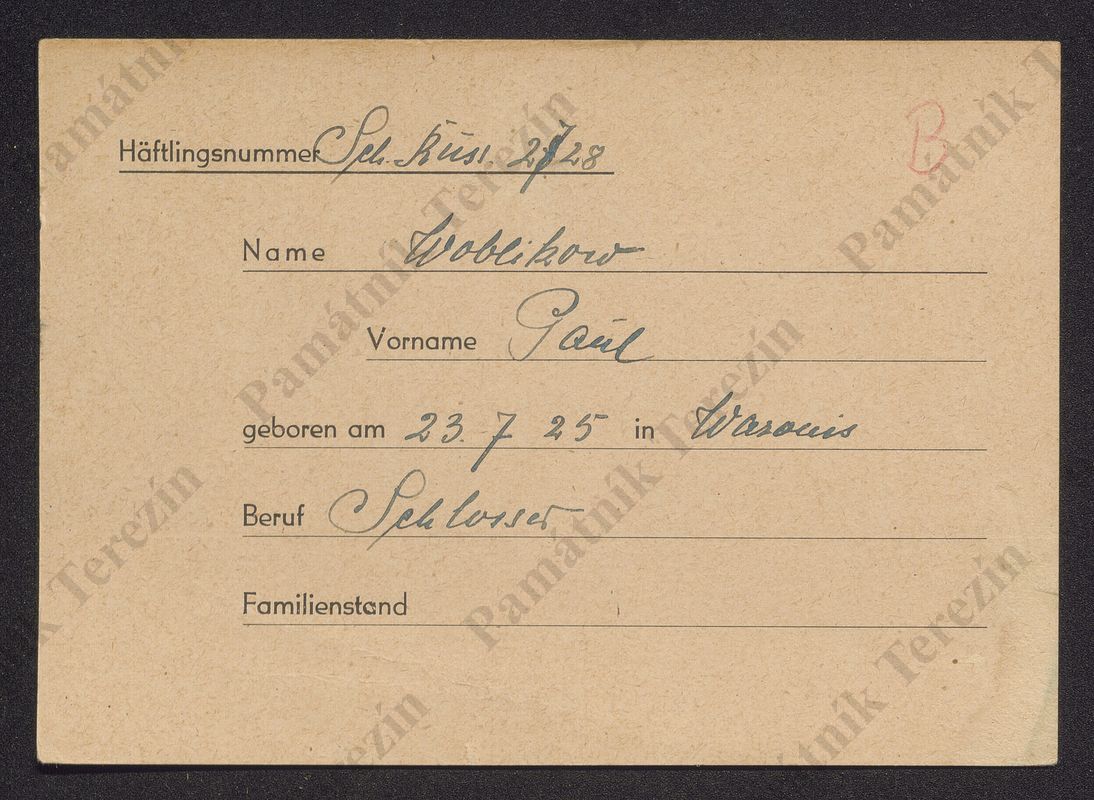 B
Häftlingsnummer Sch. Russ. 2728
Name Woblikow
Vorname Paul
geboren am 23. 7 25 in Waronis
Beruf Schlosser
Familienstand
Památník Terezín